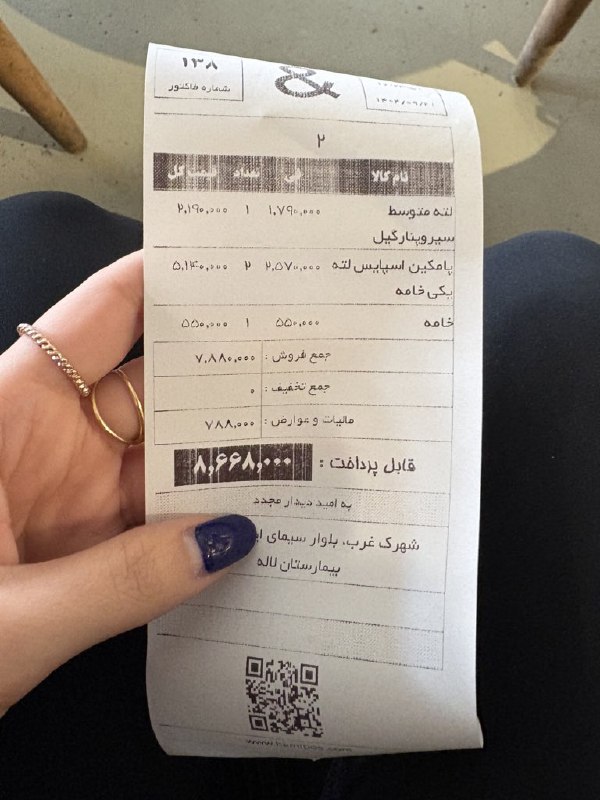 ۱۳۸
شماره فاکتور
۲
نام کالا فی تعداد قیمت کل
لته متوسط ۱,۷۹۰,۰۰۰ ۱ ۲,۱۹۰,۰۰۰
سیروپ نارگیل
پامکین اسپایس لته ۲,۵۷۰,۰۰۰ ۲ ۵,۱۴۰,۰۰۰
یکی خامه
خامه ۵۵۰,۰۰۰ ۱ ۵۵۰,۰۰۰
جمع فروش : ۷,۸۸۰,۰۰۰
جمع تخفیف : ۰
مالیات و عوارض : ۷۸۸,۰۰۰
قابل پرداخت : ۸,۶۶۸,۰۰۰
به امید دیدار مجدد
شهرک غرب، بلوار سیمای
بیمارستان لاله